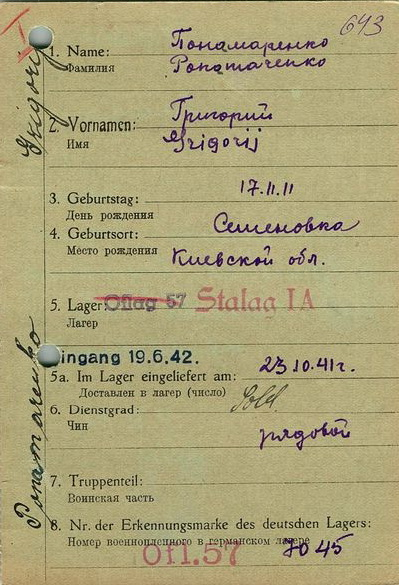 643
1. Name: Понамаренко
Фамилия Ponamarenko
2. Vornamen: Григорий
Имя Grigorij
3. Geburtstag: 17.11.11
День рождения
4. Geburtsort: Семеновка
Место рождения Киевской обл.
5. Lager: Oflag 57 Stalag IA
Лагер
Eingang 19.6.42.
5a. Im Lager eingeliefert am: 23.10.41г.
Доставлен в лагер (число)
6. Dienstgrad: Sold.
Чин рядовой
7. Truppenteil:
Воинская часть
8. Nr. der Erkennungsmarke des deutschen Lagers:
Номер военнопленного в германском лагере 7045
Ofl.57
Grigorij
Ponamarenko